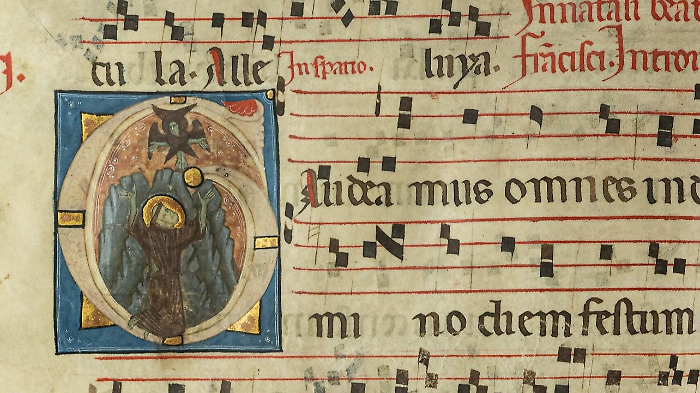 In natali beat
cu la. Alle In spatio. luya. Frãcisci. Introi
GAudea mus omnes in d
mi no diem festum